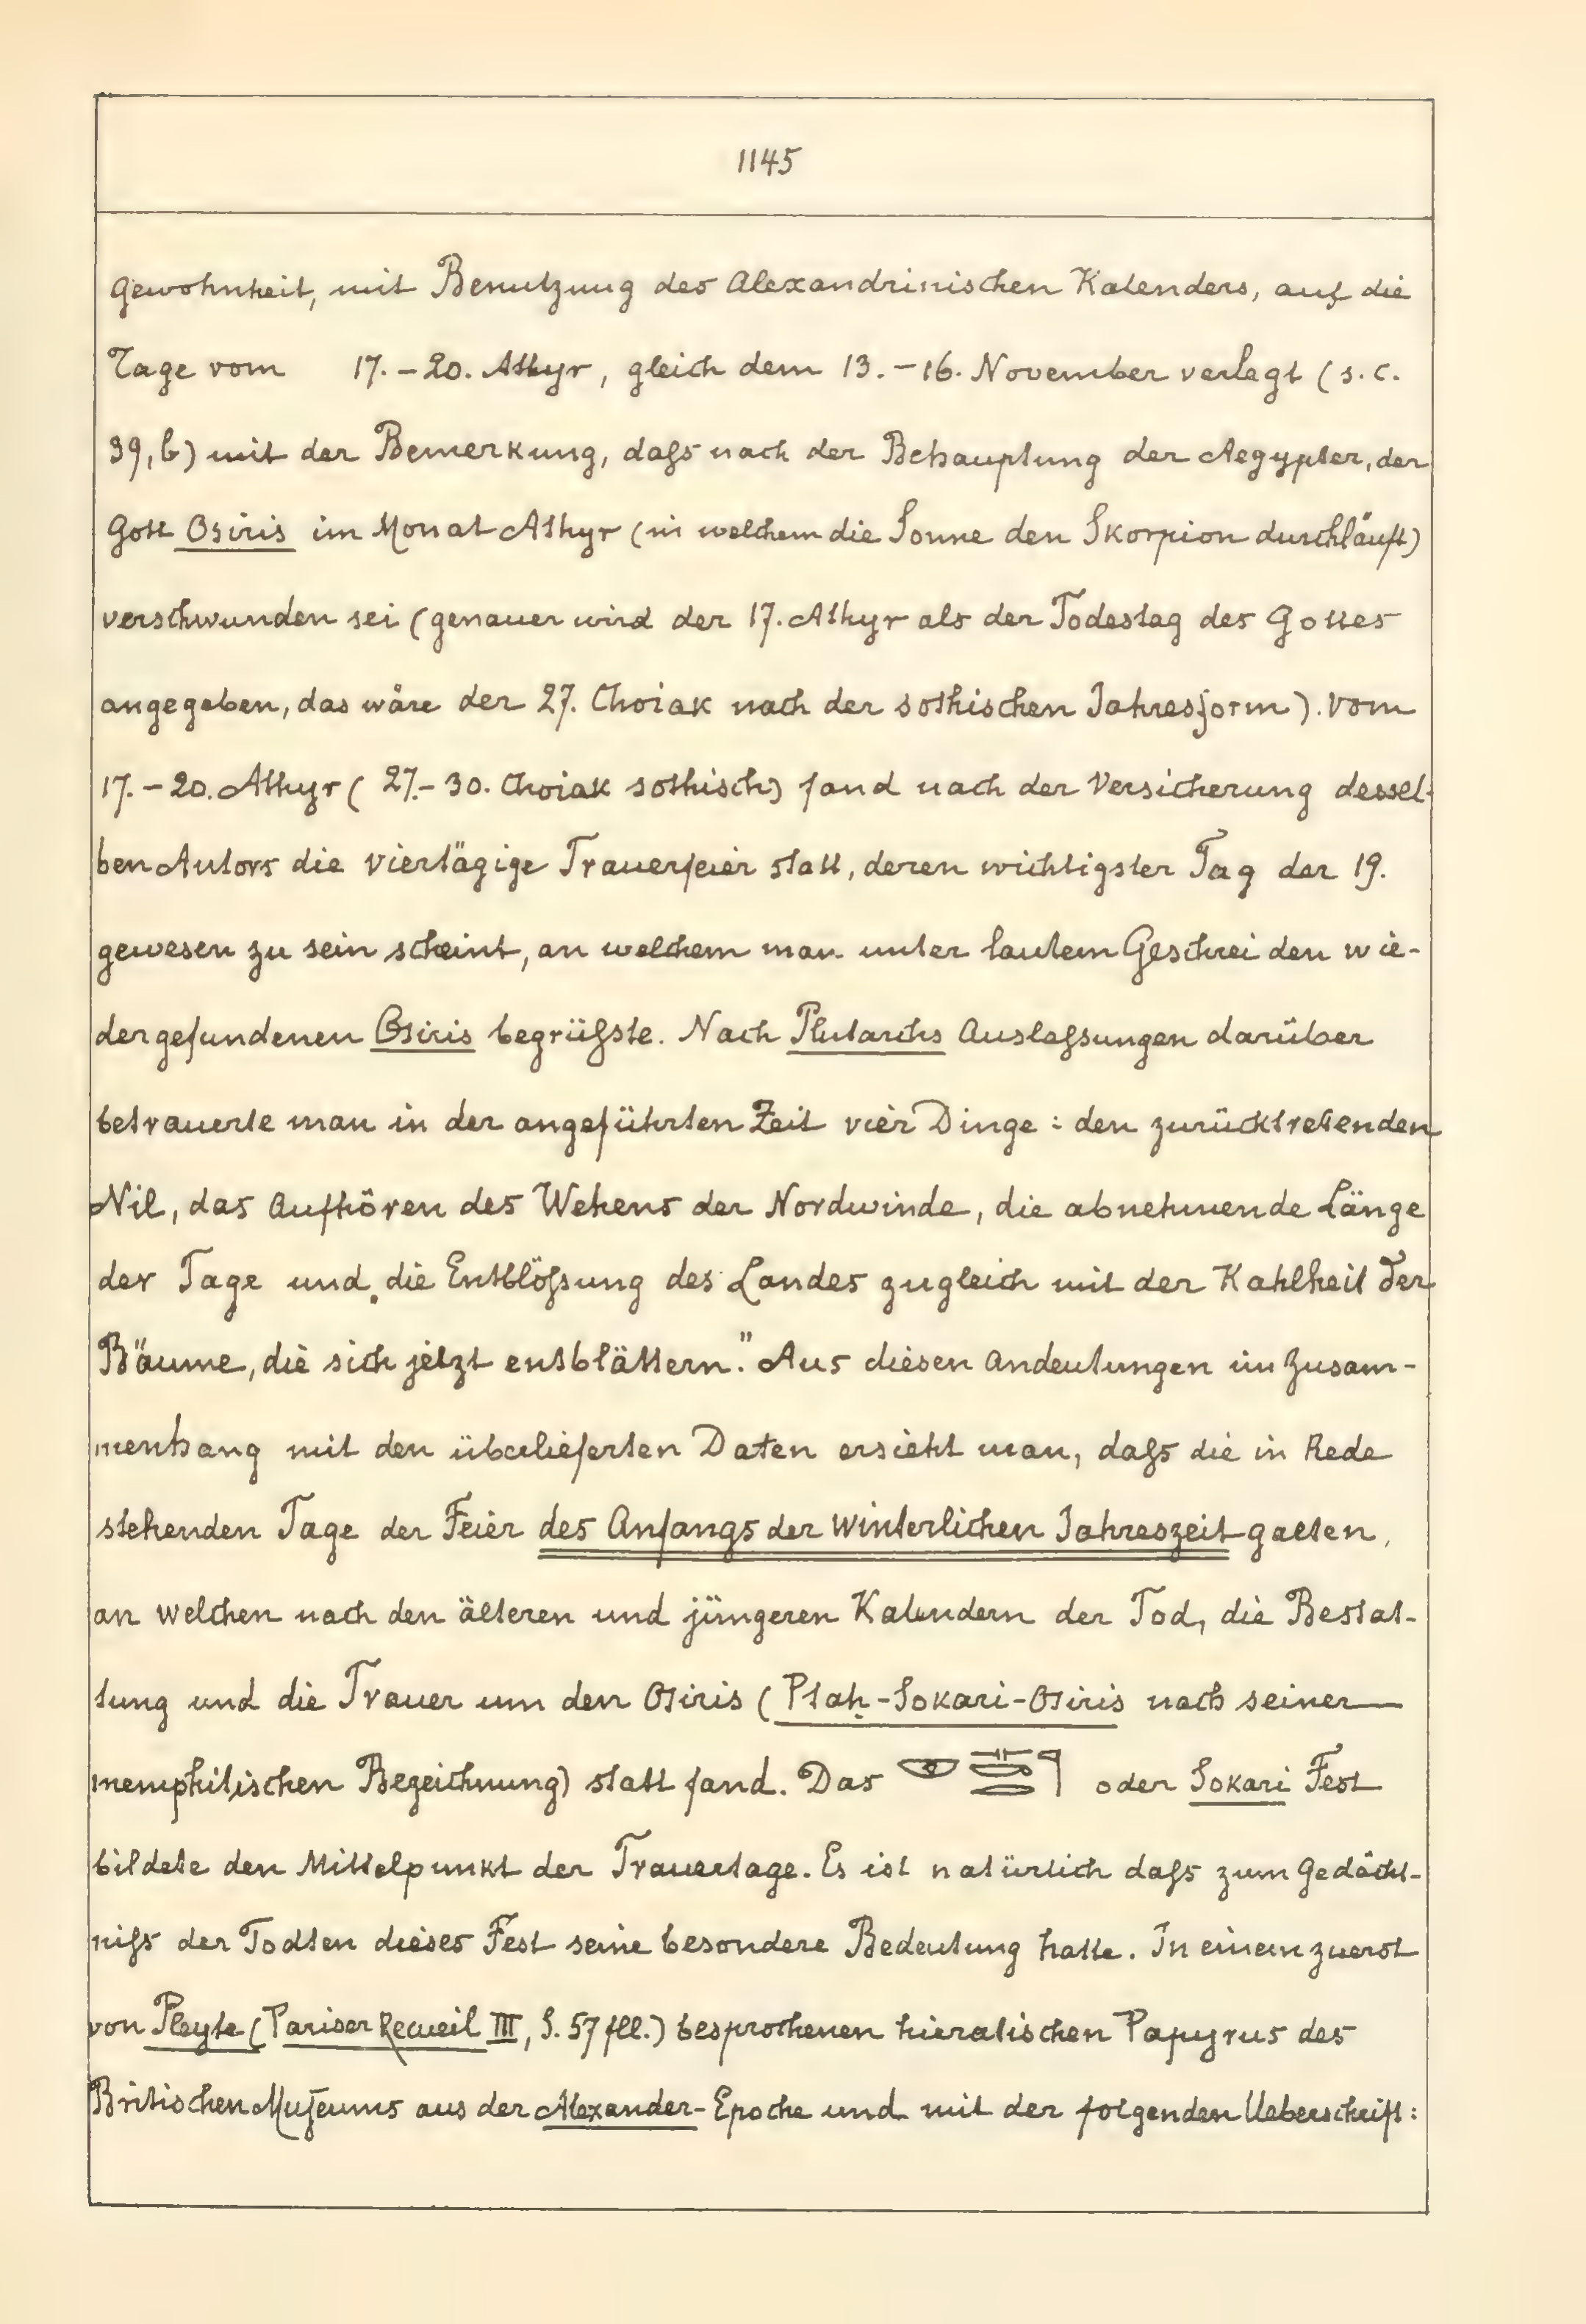 1145
Gewohnheit, mit Benutzung des Alexandrinischen Kalenders, auf die
Tage vom 17.–20. Athyr, gleich dem 13.–16. November verlegt (s. c.
39, b) mit der Bemerkung, daſs nach der Behauptung der Aegypter, der
Gott Osiris im Monat Athyr (in welchem die Sonne den Skorpion durchläuft)
verschwunden sei (genauer wird der 17. Athyr als der Todestag des Gottes
angegeben, das wäre der 27. Choiak nach der sothischen Jahresform). Vom
17.–20. Athyr (27.–30. Choiak sothisch) fand nach der Versicherung dessel-
ben Autors die viertägige Trauerfeier statt, deren wichtigster Tag der 19.
gewesen zu sein scheint, an welchem man unter lautem Geschrei den wie-
dergefundenen Osiris begrüſste. Nach Plutarchs Auslaſsungen darüber
betrauerte man in der angeführten Zeit vier Dinge: den zurücktretenden
Nil, das Aufhören des Wehens der Nordwinde, die abnehmende Länge
der Tage und „die Entblöſsung des Landes zugleich mit der Kahlheit der
Bäume, die sich jetzt entblättern." Aus diesen Andeutungen im Zusam-
menhang mit den überlieferten Daten ersieht man, daſs die in Rede
stehenden Tage der Feier des Anfangs der winterlichen Jahreszeit galten,
an welchen nach den älteren und jüngeren Kalendern der Tod, die Bestat-
tung und die Trauer um den Osiris (Ptaḥ-Sokari-Osiris nach seiner
memphitischen Bezeichnung) statt fand. Das oder Sokari Fest
bildete den Mittelpunkt der Trauertage. Es ist natürlich daſs zum Gedächt-
niſs der Todten dieses Fest seine besondere Bedeutung hatte. In einem zuerst
von Pleyte (Pariser Recueil III, S. 57 fll.) besprochenen hieratischen Papyrus des
Britischen Museums aus der Alexander-Epoche und mit der folgenden Ueberschrift: